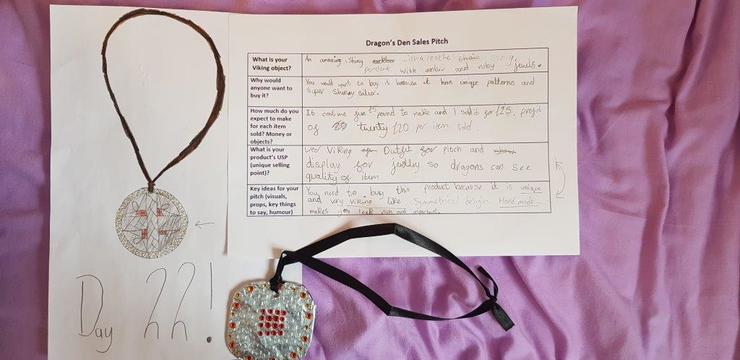 Dragon's Den Sales Pitch
What is your
Viking object?
An amazing, shiny
pendant with amber and ruby jewls.
Why would
anyone want to
buy it?
You would want to buy it because it has unique patterns and
super shiney silver.
How much do you
expect to make
for each item
sold? Money or
objects?
It cost me just £5 pound to make and I sold it for £25, profit
of twenty £20 per item sold.
What is your
product's USP
(unique selling
point)?
Viking Outfit for pitch and
display for jewllry so dragons can see
quality of item
Key ideas for your
pitch (visuals,
props, key things
to say, humour)
You need to buy this product because it is unique
and very viking like Symmetrical design. Hand made
makes you look rich and
Day 22!